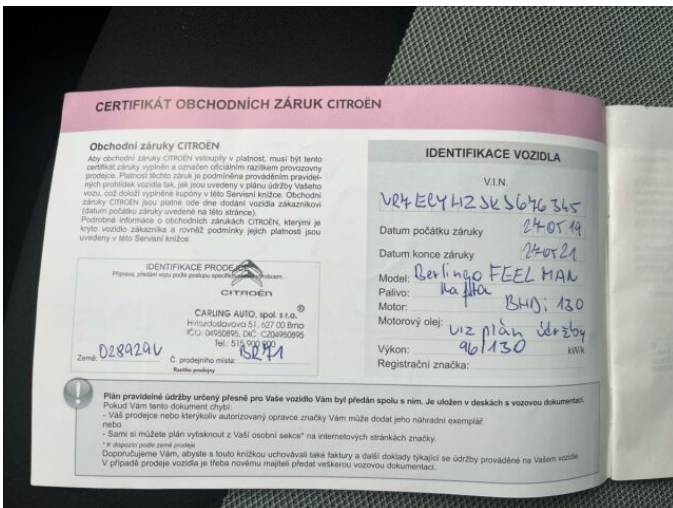 CERTIFIKÁT OBCHODNÍCH ZÁRUK CITROËN
Obchodní záruky CITROËN
Aby obchodní záruky CITROËN vstoupily v platnost, musí být tento
certifikát záruky vyplněn a označen oficiálním razítkem provozovny
prodejce. Platnost těchto záruk je podmíněna prováděním pravidel-
ných prohlídek vozidla tak, jak jsou uvedeny v plánu údržby Vašeho
vozu, což doloží vyplněné kupóny v této Servisní knížce. Obchodní
záruky CITROËN jsou platné ode dne dodání vozidla zákazníkovi
(datum počátku záruky uvedené na této stránce).
Podrobné informace o obchodních zárukách CITROËN, kterými je
kryto vozidlo zákazníka a rovněž podmínky jejich platnosti jsou
uvedeny v této Servisní knížce.
IDENTIFIKACE PRODEJCE
Příprava, předání vozu podle postupu specifikovaného výrobcem.
CITROËN
CARLING AUTO, spol. s r.o.
Hviezdoslavova 51, 627 00 Brno
IČO: 04950895, DIČ: CZ04950895
Tel.: 515 900 900
Země: D28929V
Č. prodejního místa: BR71
Razítko prodejny
IDENTIFIKACE VOZIDLA
V.I.N.
Datum počátku záruky 240519
Datum konce záruky 240521
Model: Berlingo FEEL MAN
Palivo: Nafta
Motor: BHDi 130
Motorový olej: viz plán údržby
Výkon: 96/130 kW/k
Registrační značka:
Plán pravidelné údržby určený přesně pro Vaše vozidlo Vám byl předán spolu s ním. Je uložen v deskách s vozovou dokumentací.
Pokud Vám tento dokument chybí:
- Váš prodejce nebo kterýkoliv autorizovaný opravce značky Vám může dodat jeho náhradní exemplář
nebo
- Sami si můžete plán vytisknout z Vaší osobní sekce* na internetových stránkách značky.
* K dispozici podle země prodeje
Doporučujeme Vám, abyste s touto knížkou uchovávali také faktury a další doklady týkající se údržby prováděné na Vašem vozidle.
V případě prodeje vozidla je třeba novému majiteli předat veškerou vozovou dokumentaci.